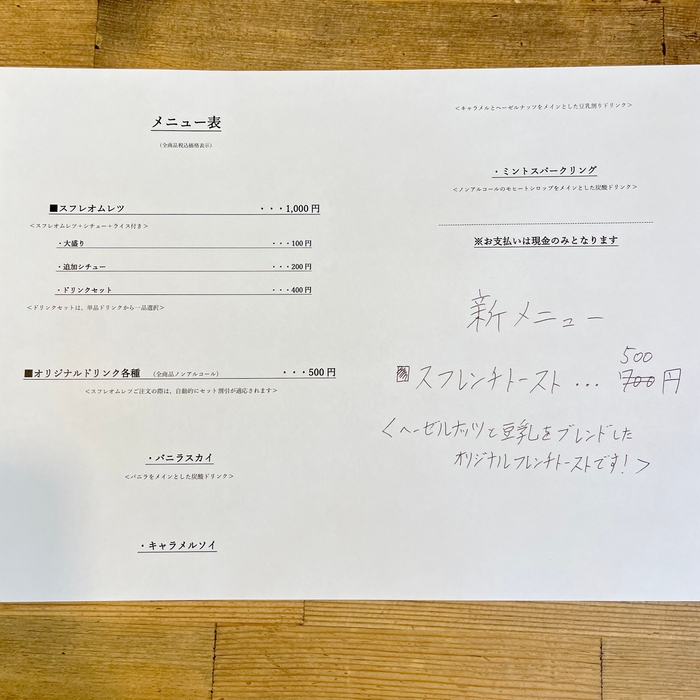 メニュー表
(全商品税込価格表示)
■スフレオムレツ ・・・1,000円
＜スフレオムレツ＋シチュー＋ライス付き＞
・大盛り ・・・100円
・追加シチュー ・・・200円
・ドリンクセット ・・・400円
＜ドリンクセットは、単品ドリンクから一品選択＞
■オリジナルドリンク各種 (全商品ノンアルコール) ・・・500円
＜スフレオムレツご注文の際は、自動的にセット割引が適応されます＞
・バニラスカイ
＜バニラをメインとした炭酸ドリンク＞
・キャラメルソイ
＜キャラメルとヘーゼルナッツをメインとした豆乳割りドリンク＞
・ミントスパークリング
＜ノンアルコールのモヒートシロップをメインとした炭酸ドリンク＞
※お支払いは現金のみとなります
新メニュー
500
スフレンチトースト... 700円
＜ヘーゼルナッツと豆乳をブレンドした
オリジナルフレンチトーストです!＞